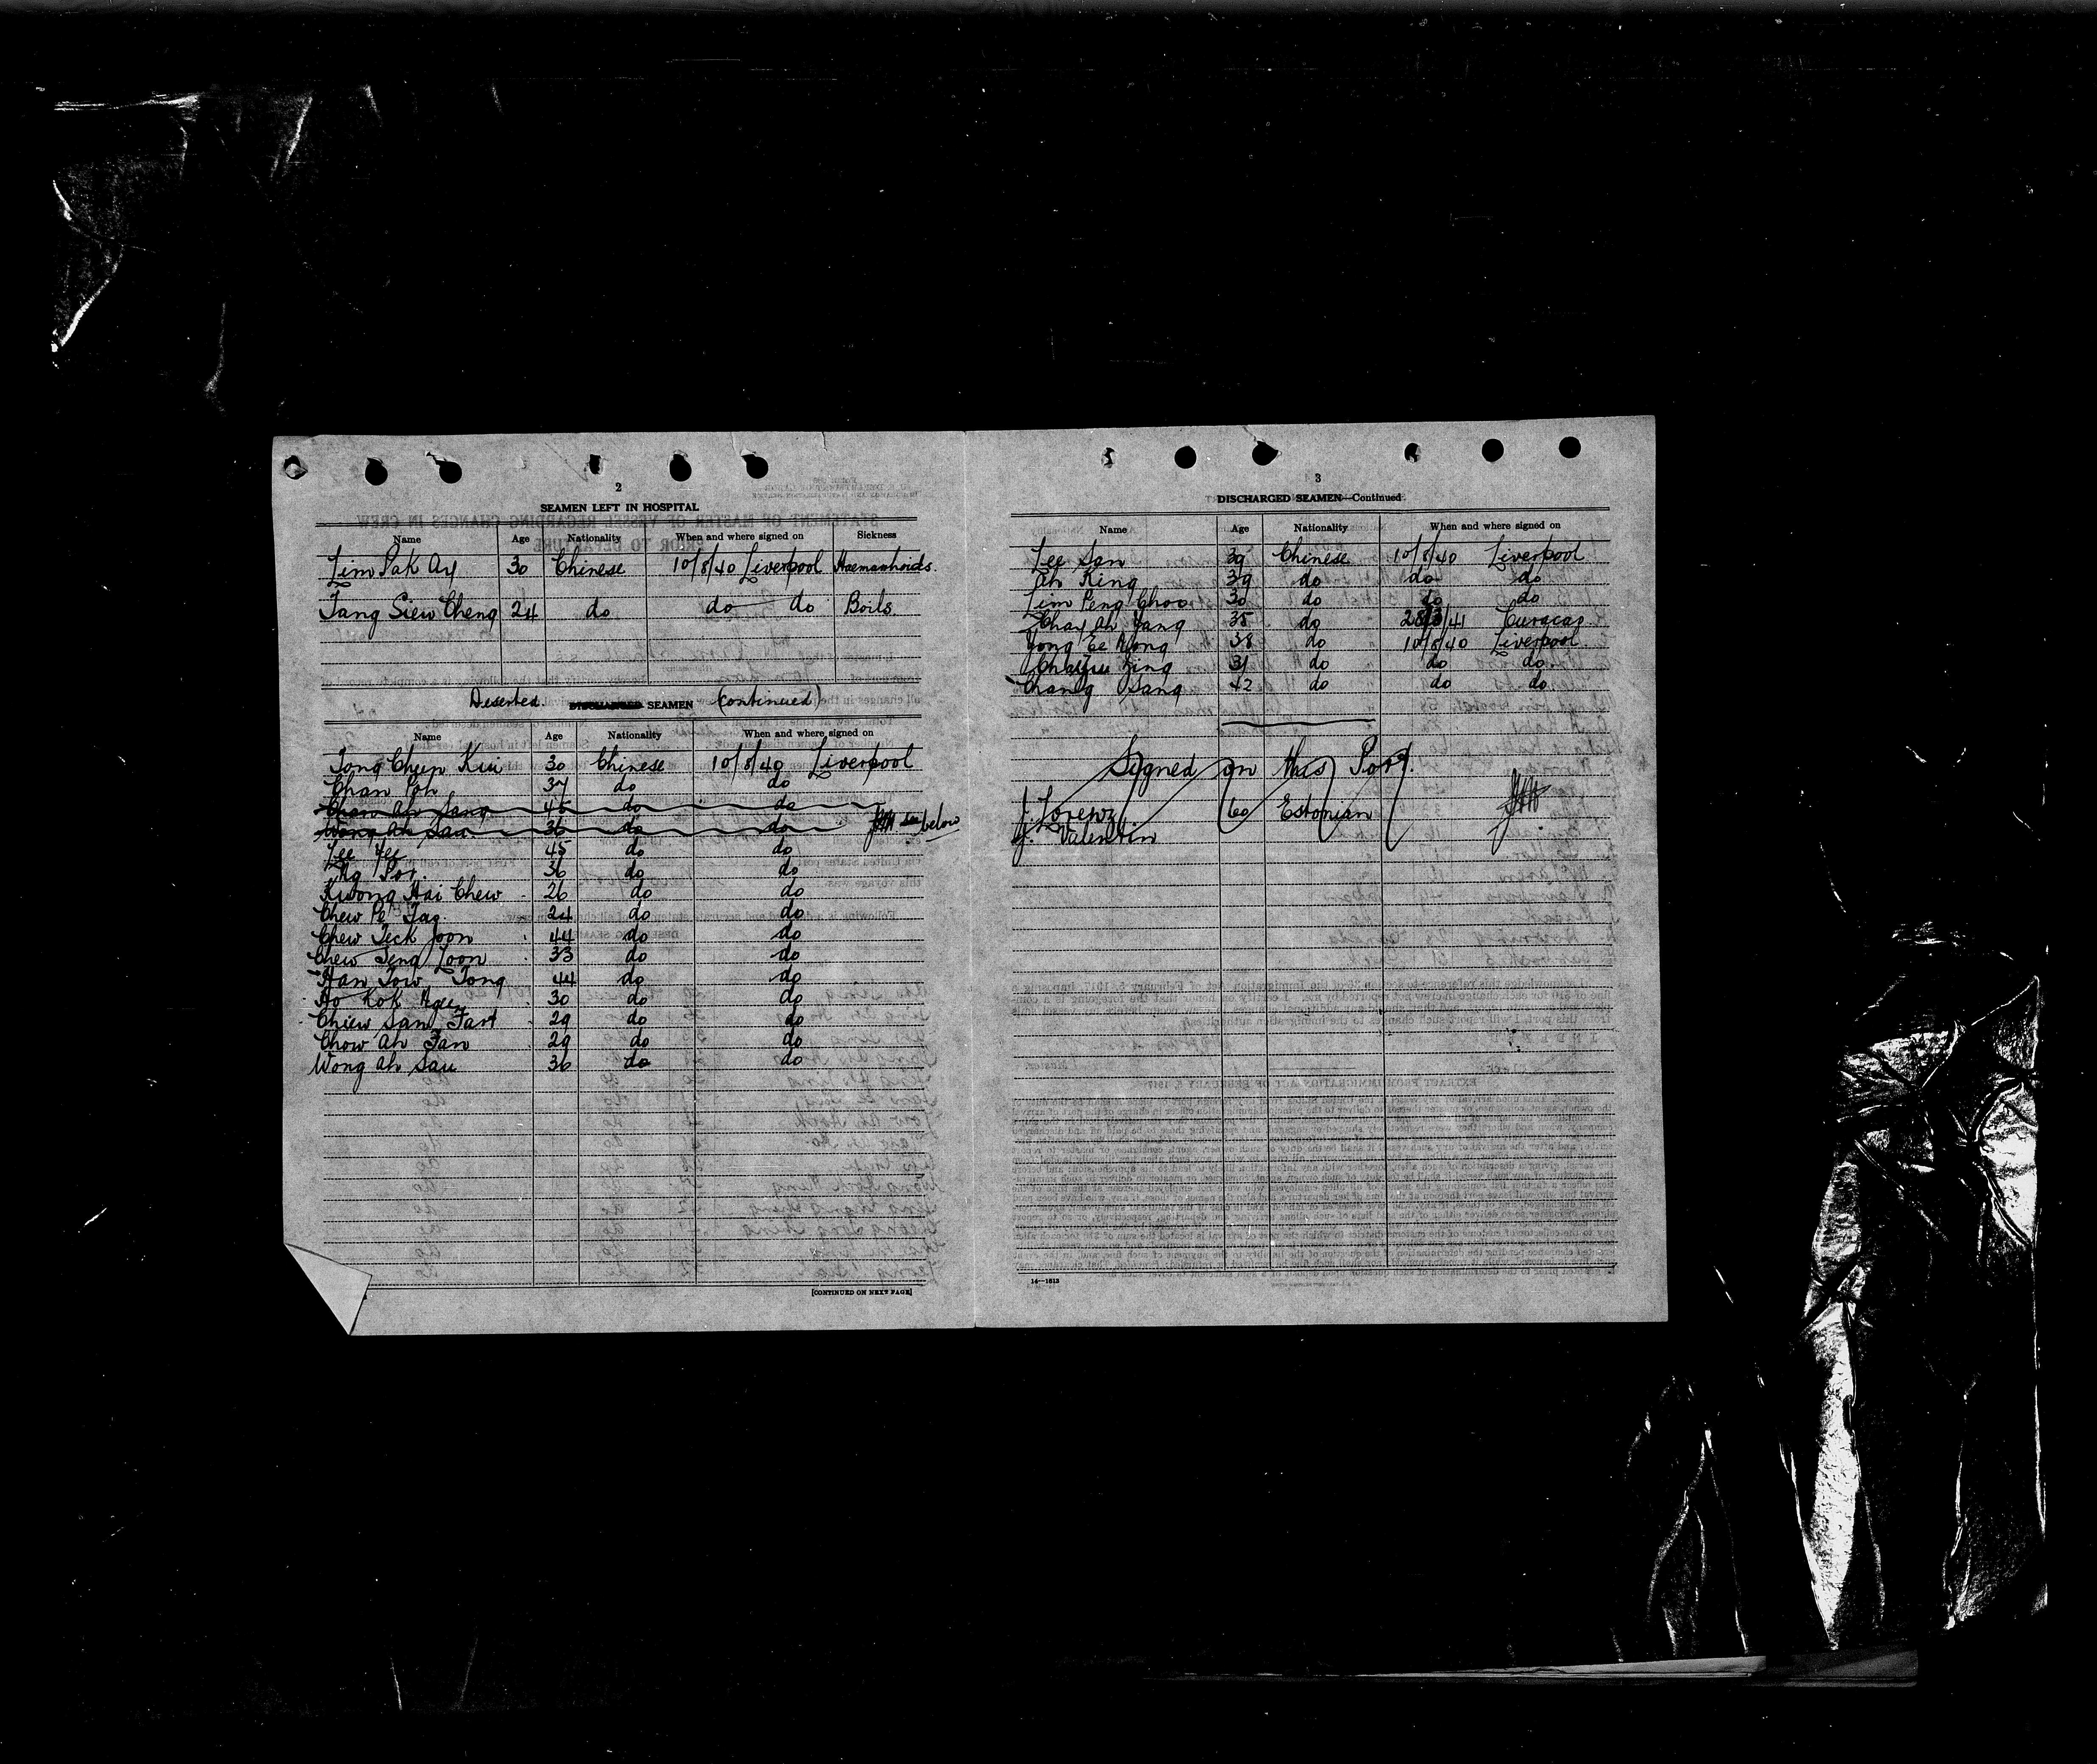 2
SEAMEN LEFT IN HOSPITAL
Name Age Nationality When and where signed on Sickness
Lim Pak Ay 30 Chinese 10/8/40 Liverpool Haemarrhoids.
Tang Siew Cheng 24 do do do Boils
Deserted. DISCHARGED SEAMEN (Continued)
Name Age Nationality When and where signed on
Tong Chun Kui 30 Chinese 10/8/40 Liverpool
Chan Poh 37 do do
Chan Ah Sang 45 do do
Wong Ah Sau 36 do do see below
Lee Yee 45 do do
Ng Por. 36 do do
Kwong Hai Chew 26 do do
Chew Pe Tag 24 do do
Chew Teck Joon 44 do do
Chew Teng Joon 33 do do
Han Tow Tong 44 do do
Ho Kok Ngee 30 do do
Chiew San Fart 29 do do
Chow Ah Tan 29 do do
Wong Ah Sau 36 do do
[CONTINUED ON NEXT PAGE]
3
DISCHARGED SEAMEN—Continued
Name Age Nationality When and where signed on
Lee San 39 Chinese 10/8/40 Liverpool
Ah King 39 do do do
Lim Peng Choo 30 do do do
Ah Yang 35 do /41 Curacao
Yong Ee Wong 38 do 10/8/40 Liverpool
Zing 31 do do do
Chang Sang 42 do do do
Signed on this Port.
J. Lorenz 60 Estonian
J. Valentin
14—1813